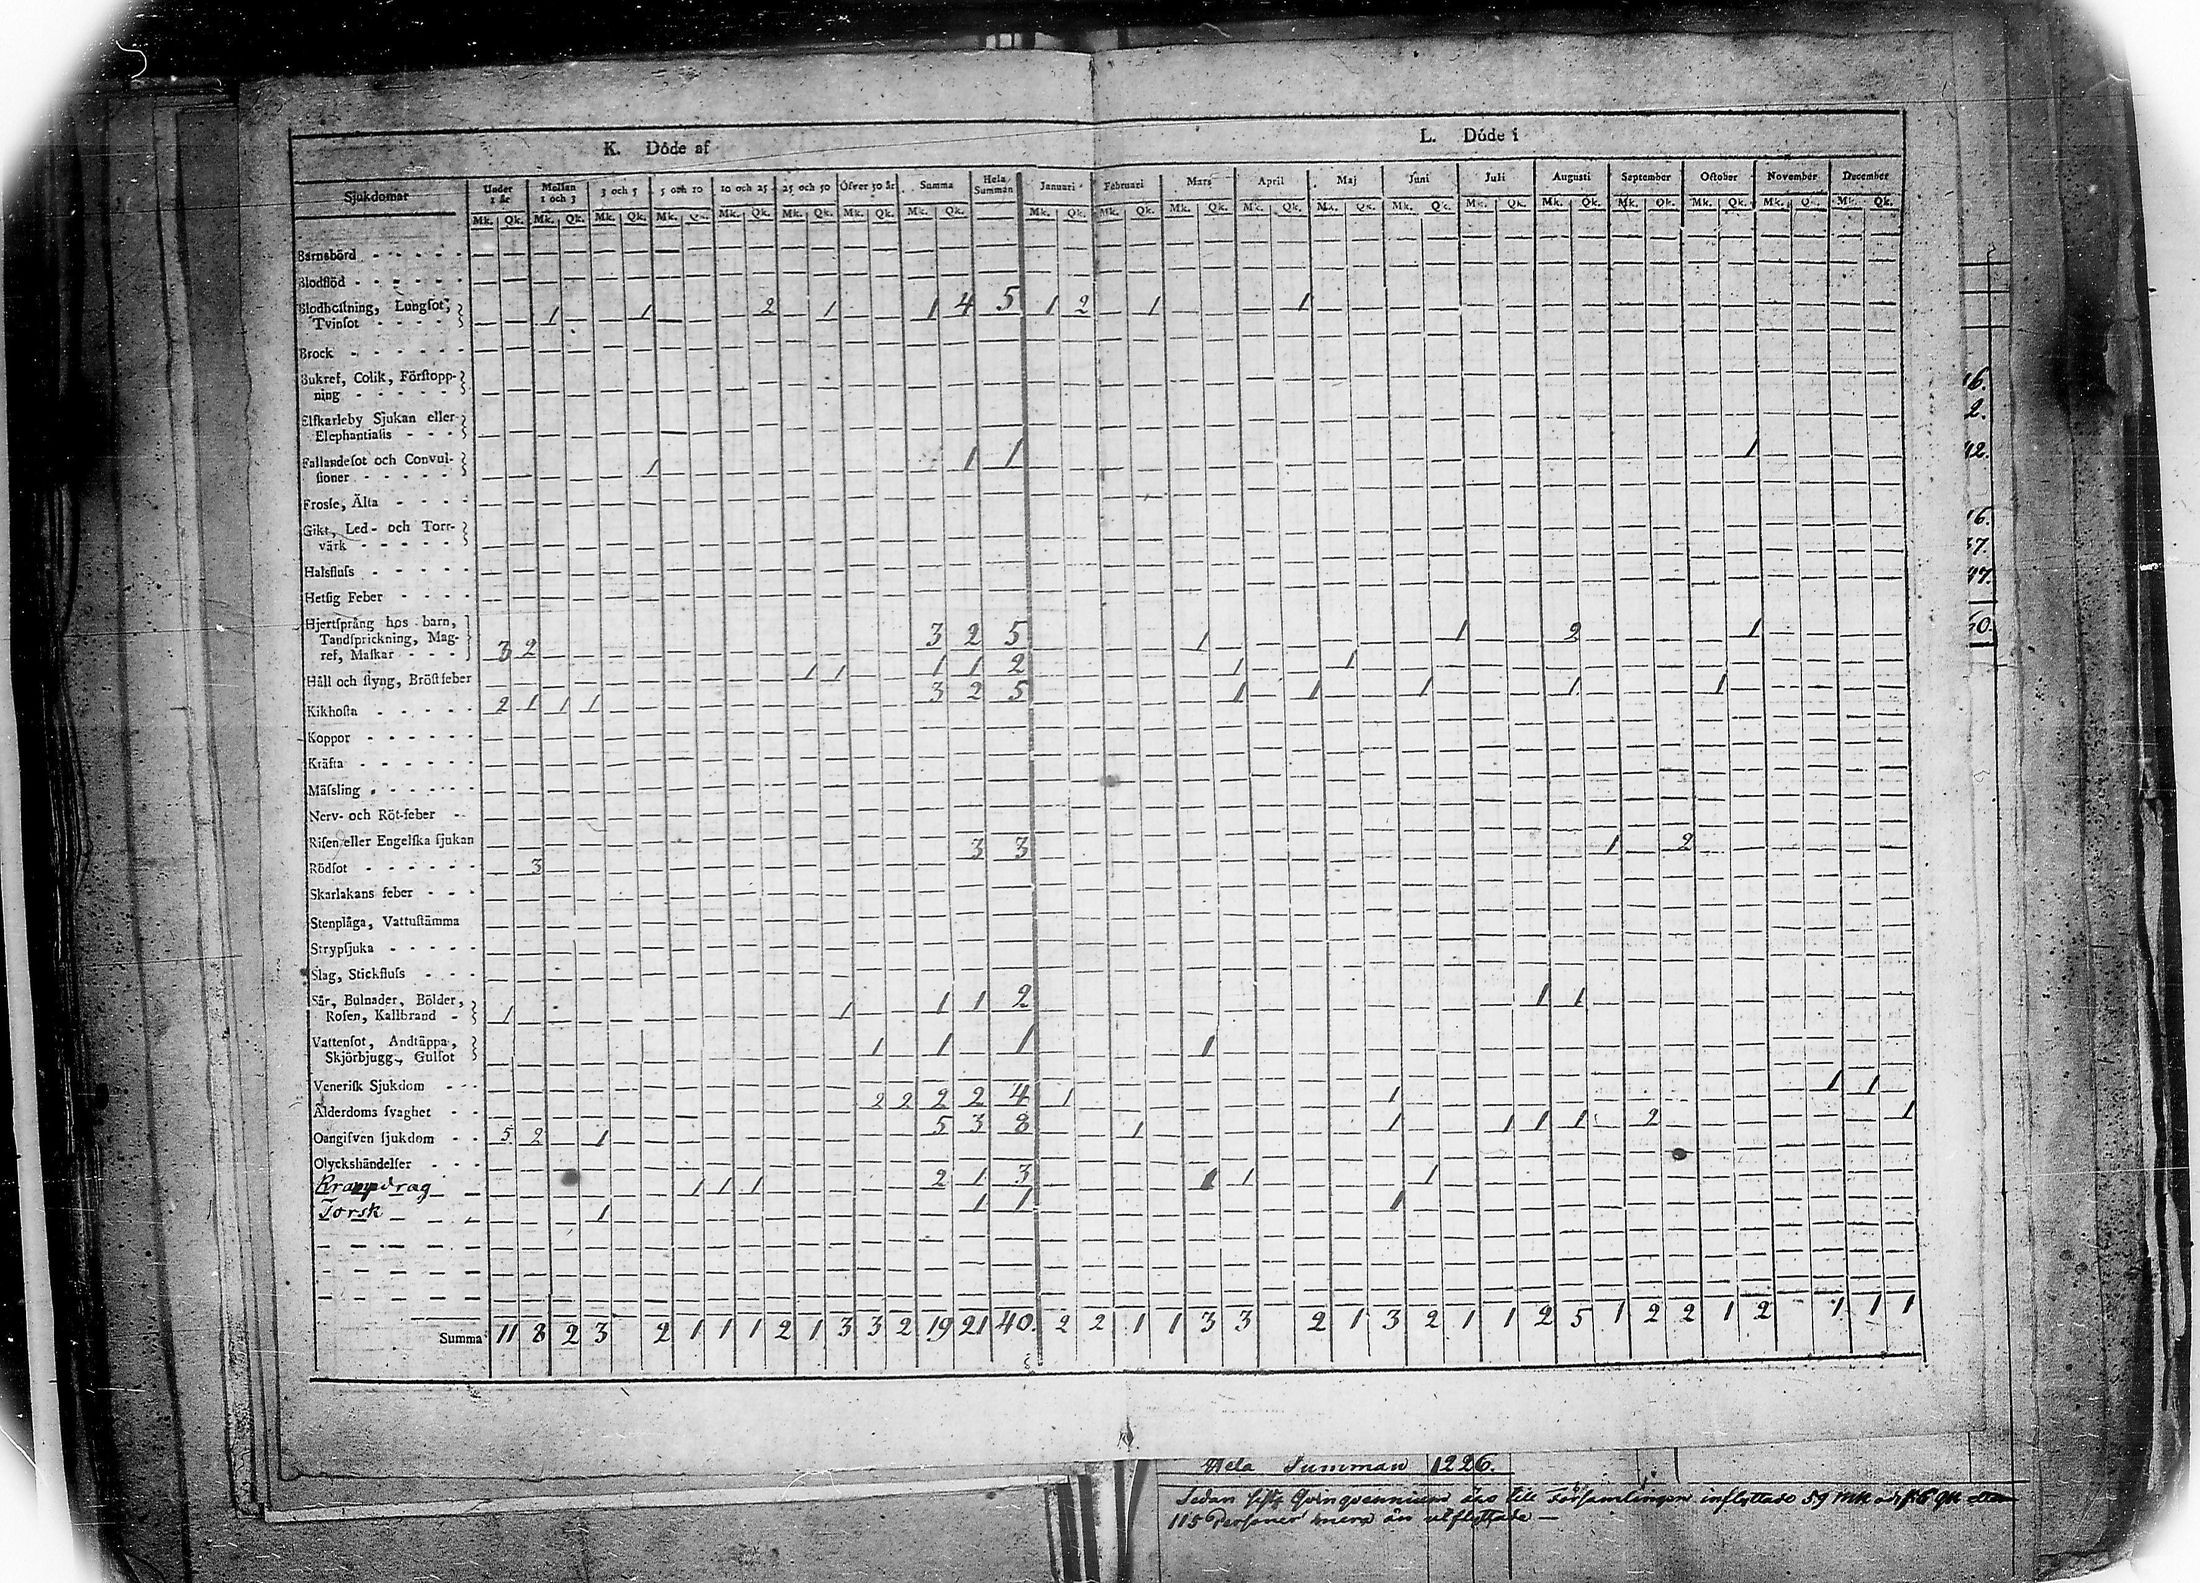 K. Döde af
L. Döde i
Sjukdomar
Under 1 år
Mellan 1 och 3
3 och 5
5 och 10
10 och 25
25 och 50
Öfver 50 år
Summa
Hela Summan
Januari
Februari
Mars
April
Maj
Juni
Juli
Augusti
September
October
November
December
Mk. Qk. Mk. Qk. Mk. Qk. Mk. Qk. Mk. Qk. Mk. Qk. Mk. Qk. Mk. Qk. Mk. Qk. Mk. Qk. Mk. Qk. Mk. Qk. Mk. Qk. Mk. Qk. Mk. Qk. Mk. Qk. Mk. Qk. Mk. Qk. Mk. Qk. Mk. Qk.
Barnsbörd
Blodflöd
Blodhostning, Lungsot,
Tvinsot 1 1 2 1 1 4 5 1 2 1 1
Brock
Bukref, Colik, Förstopp-
ning
Elfkarleby Sjukan eller
Elephantiasis
Fallandesot och Convul-
sioner 1 1 1 1
Frosse, Älta
Gikt, Led- och Torr-
värk
Halsfluss
Hetsig Feber
Hjertsprång hos barn,
Tandsprickning, Mag-
ref, Maskar 3 2 3 2 5 1 1 2 1
Håll och styng, Bröstfeber 1 1 1 1 2 1 1
Kikhosta 2 1 1 1 3 2 5 1 1 1 1 1
Koppor
Kräfta
Mässling
Nerv- och Röt-feber
Risen eller Engelska sjukan
Rödsot 3 3 3 1 2
Skarlakans feber
Stenplåga, Vattustämma
Strypsjuka
Slag, Stickfluss
Sår, Bulnader, Bölder,
Rosen, Kallbrand 1 1 1 1 2 1 1
Vattensot, Andtäppa,
Skjörbjugg, Gulsot 1 1 1 1
Venerisk Sjukdom
Ålderdoms svaghet 2 2 2 2 4 1 1 1 1
Oangifven sjukdom 5 2 1 5 3 8 1 1 1 1 1 2 1
Olyckshändelser
Krampdrag 1 1 1 2 1 3 1 1 1
Torsk 1 1 1 1
Summa 11 8 2 3 2 1 1 1 2 1 3 3 2 19 21 40. 2 2 1 1 3 3 2 1 3 2 1 1 2 5 1 2 2 1 2 1 1 1
Hela Summan 1226.
Sedan sista Qvinqvennium äro till Församlingen inflyttade 59 Mk
115 Personer mera än utflyttade —